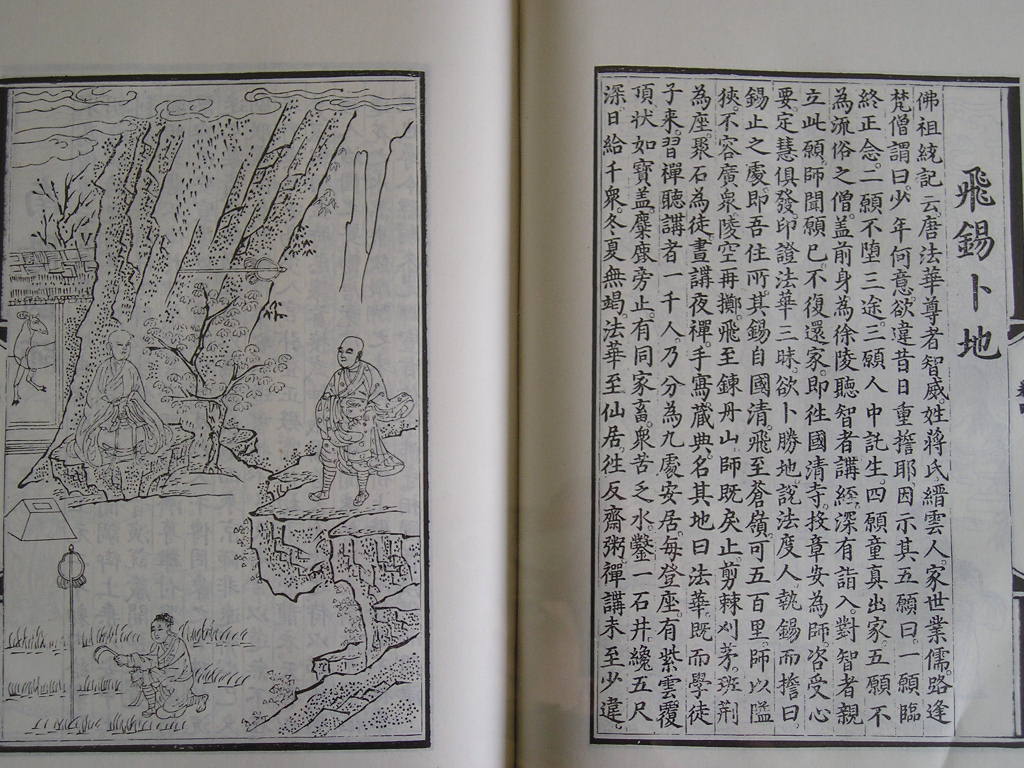 飛錫卜地
佛祖統記云。唐法華尊者智威姓蔣氏縉雲人。家世業儒。路逢
梵僧謂曰。少年何意。欲違昔日重擔耶。因示其五願曰。一願臨
終正念。二願不墮三途。三願人中託生。四願童真出家。五願不
為流俗之僧。蓋前身為徐陵聽智者講經。深有詣入。對智者親
立此願。師聞願已不復還家。即往國清寺。投章安為師。咨受心
要定慧俱發。印證法華三昧。欲卜勝地。說法度人執錫而擔曰。
錫止之處。即吾住所。其錫自國清。飛至蒼嶺。可五百里。師以隘
狹。不容廣衆。陵空再擲。飛至鍊丹山。師既戾止。剪棘刈茅。班荆
為座。聚石為徒。晝講夜禪。手寫藏典。名其地曰法華。既而學徒
子來。習禪聽講者一千人。乃分為九處安居。每登座。有紫雲覆
頂。狀如寶蓋。麋鹿旁止。有同家畜。衆苦乏水。鑿一石井。纔五尺
深。日給千衆。冬夏無竭。法華至仙居。往反齋粥禪講未至少違。